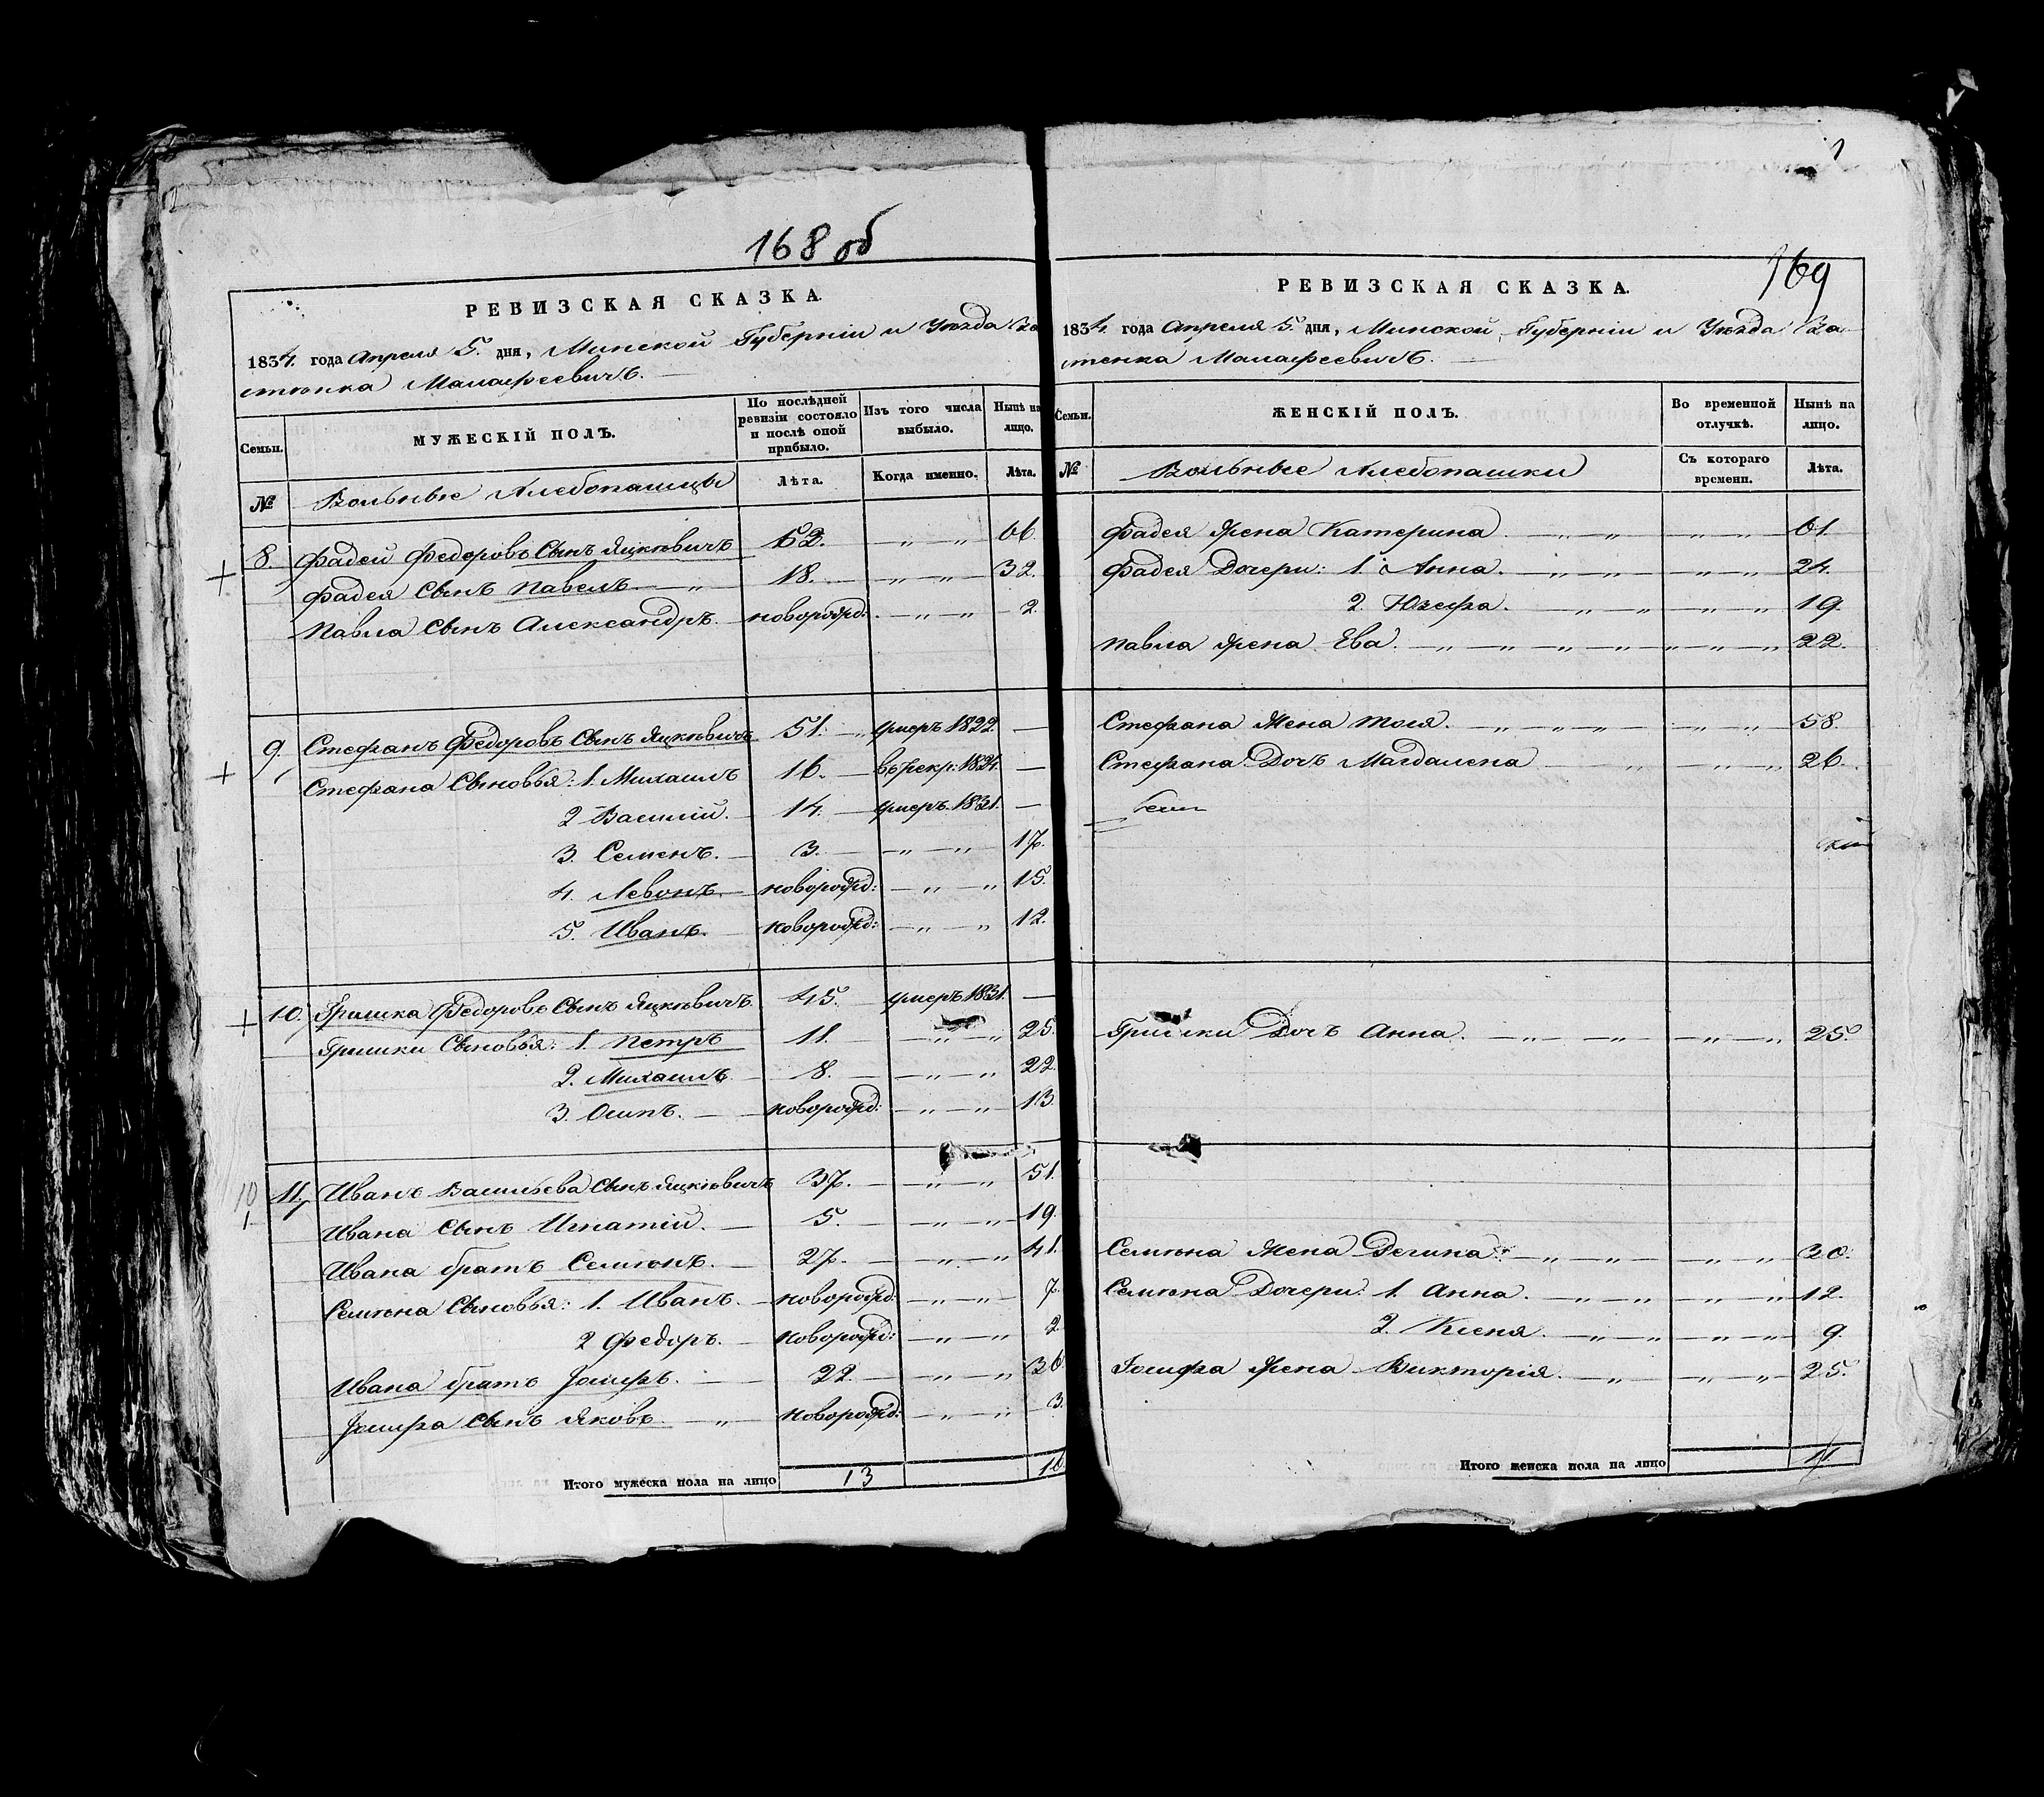 168 об
РЕВИЗСКАЯ СКАЗКА.
1834. года Апреля 5. дня, Минской Губерніи и Уѣзда За
стенка Малафеевичъ.
Семьи.
МУЖЕСКІЙ ПОЛЪ.
По послѣдней ревизіи состояло и послѣ оной прибыло.
Изъ того числа выбыло.
Нынѣ на лицо.
№
Вольные Хлебопашцы
Лѣта.
Когда именно.
Лѣта.
8 Фадей Федоровъ Сынъ Яцкѣвичъ 52. 66
Фадея Сынъ Павелъ 18. 32.
Павла Сынъ Александръ. новорожд: 2.
9, Стефанъ Федоровъ Сынъ Яцкѣвичъ 51. умеръ 1822.
Стефана Сыновья: 1. Михаилъ 16. въ рекр: 1824.
2 Василій. 14. умеръ 1831.
3. Семенъ. 3. 17.
4. Левонъ. новорожд: 15.
5. Иванъ. новорожд: 12.
10. Гришка Федоровъ Сынъ Яцкѣвичъ. 45. умеръ 1831.
Гришки Сыновья: 1. Петръ 11. 25.
2. Михаилъ 8. 22.
3. Осипъ. новорожд: 13.
10 11, Иванъ Васильева Сынъ Яцкѣвичъ 37. 51.
Ивана Сынъ Игнатій. 5. 19.
Ивана братъ Семіонъ. 27. 41.
Семіона Сыновья: 1. Иванъ. новорожд: 7.
2 Федоръ. новорожд: 2
Ивана братъ Іосифъ. 22. 36
Іосифа Сынъ Яковъ. новорожд: 3.
Итого мужеска пола на лицо 13 16
169
РЕВИЗСКАЯ СКАЗКА.
1834. года Апреля 5. дня, Минской, Губерніи и Уѣзда За
стенка Малафеевичъ.
Семьи.
ЖЕНСКІЙ ПОЛЪ.
Во временной отлучкѣ.
Нынѣ на лицо.
№
Вольные Хлебопашки
Съ котораго времени.
Лѣта.
Фадея Жена Катерина. 61.
Фадея Дочери: 1. Анна. 24.
2. Юзефа. 19.
Павла Жена Ева. 22.
Стефана Жена 58.
Стефана Дочъ Магдалена 26.
Гришки Дочъ Анна. 25.
Семіона Жена Регина. 30.
Семіона Дочери: 1. Анна. 12.
2. Ксеня. 9.
Іосифа Жена Викторія. 25.
Итого женска пола на лицо 11